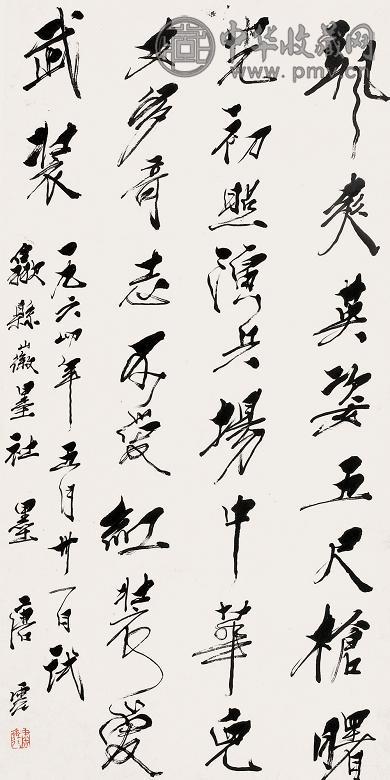 颯爽英姿五尺槍曙
光初照演兵場中華兒
女多奇志不愛紅裝愛
武裝
一九六四年五月卅一日試
歙縣徽墨社墨 唐雲
中华收藏网